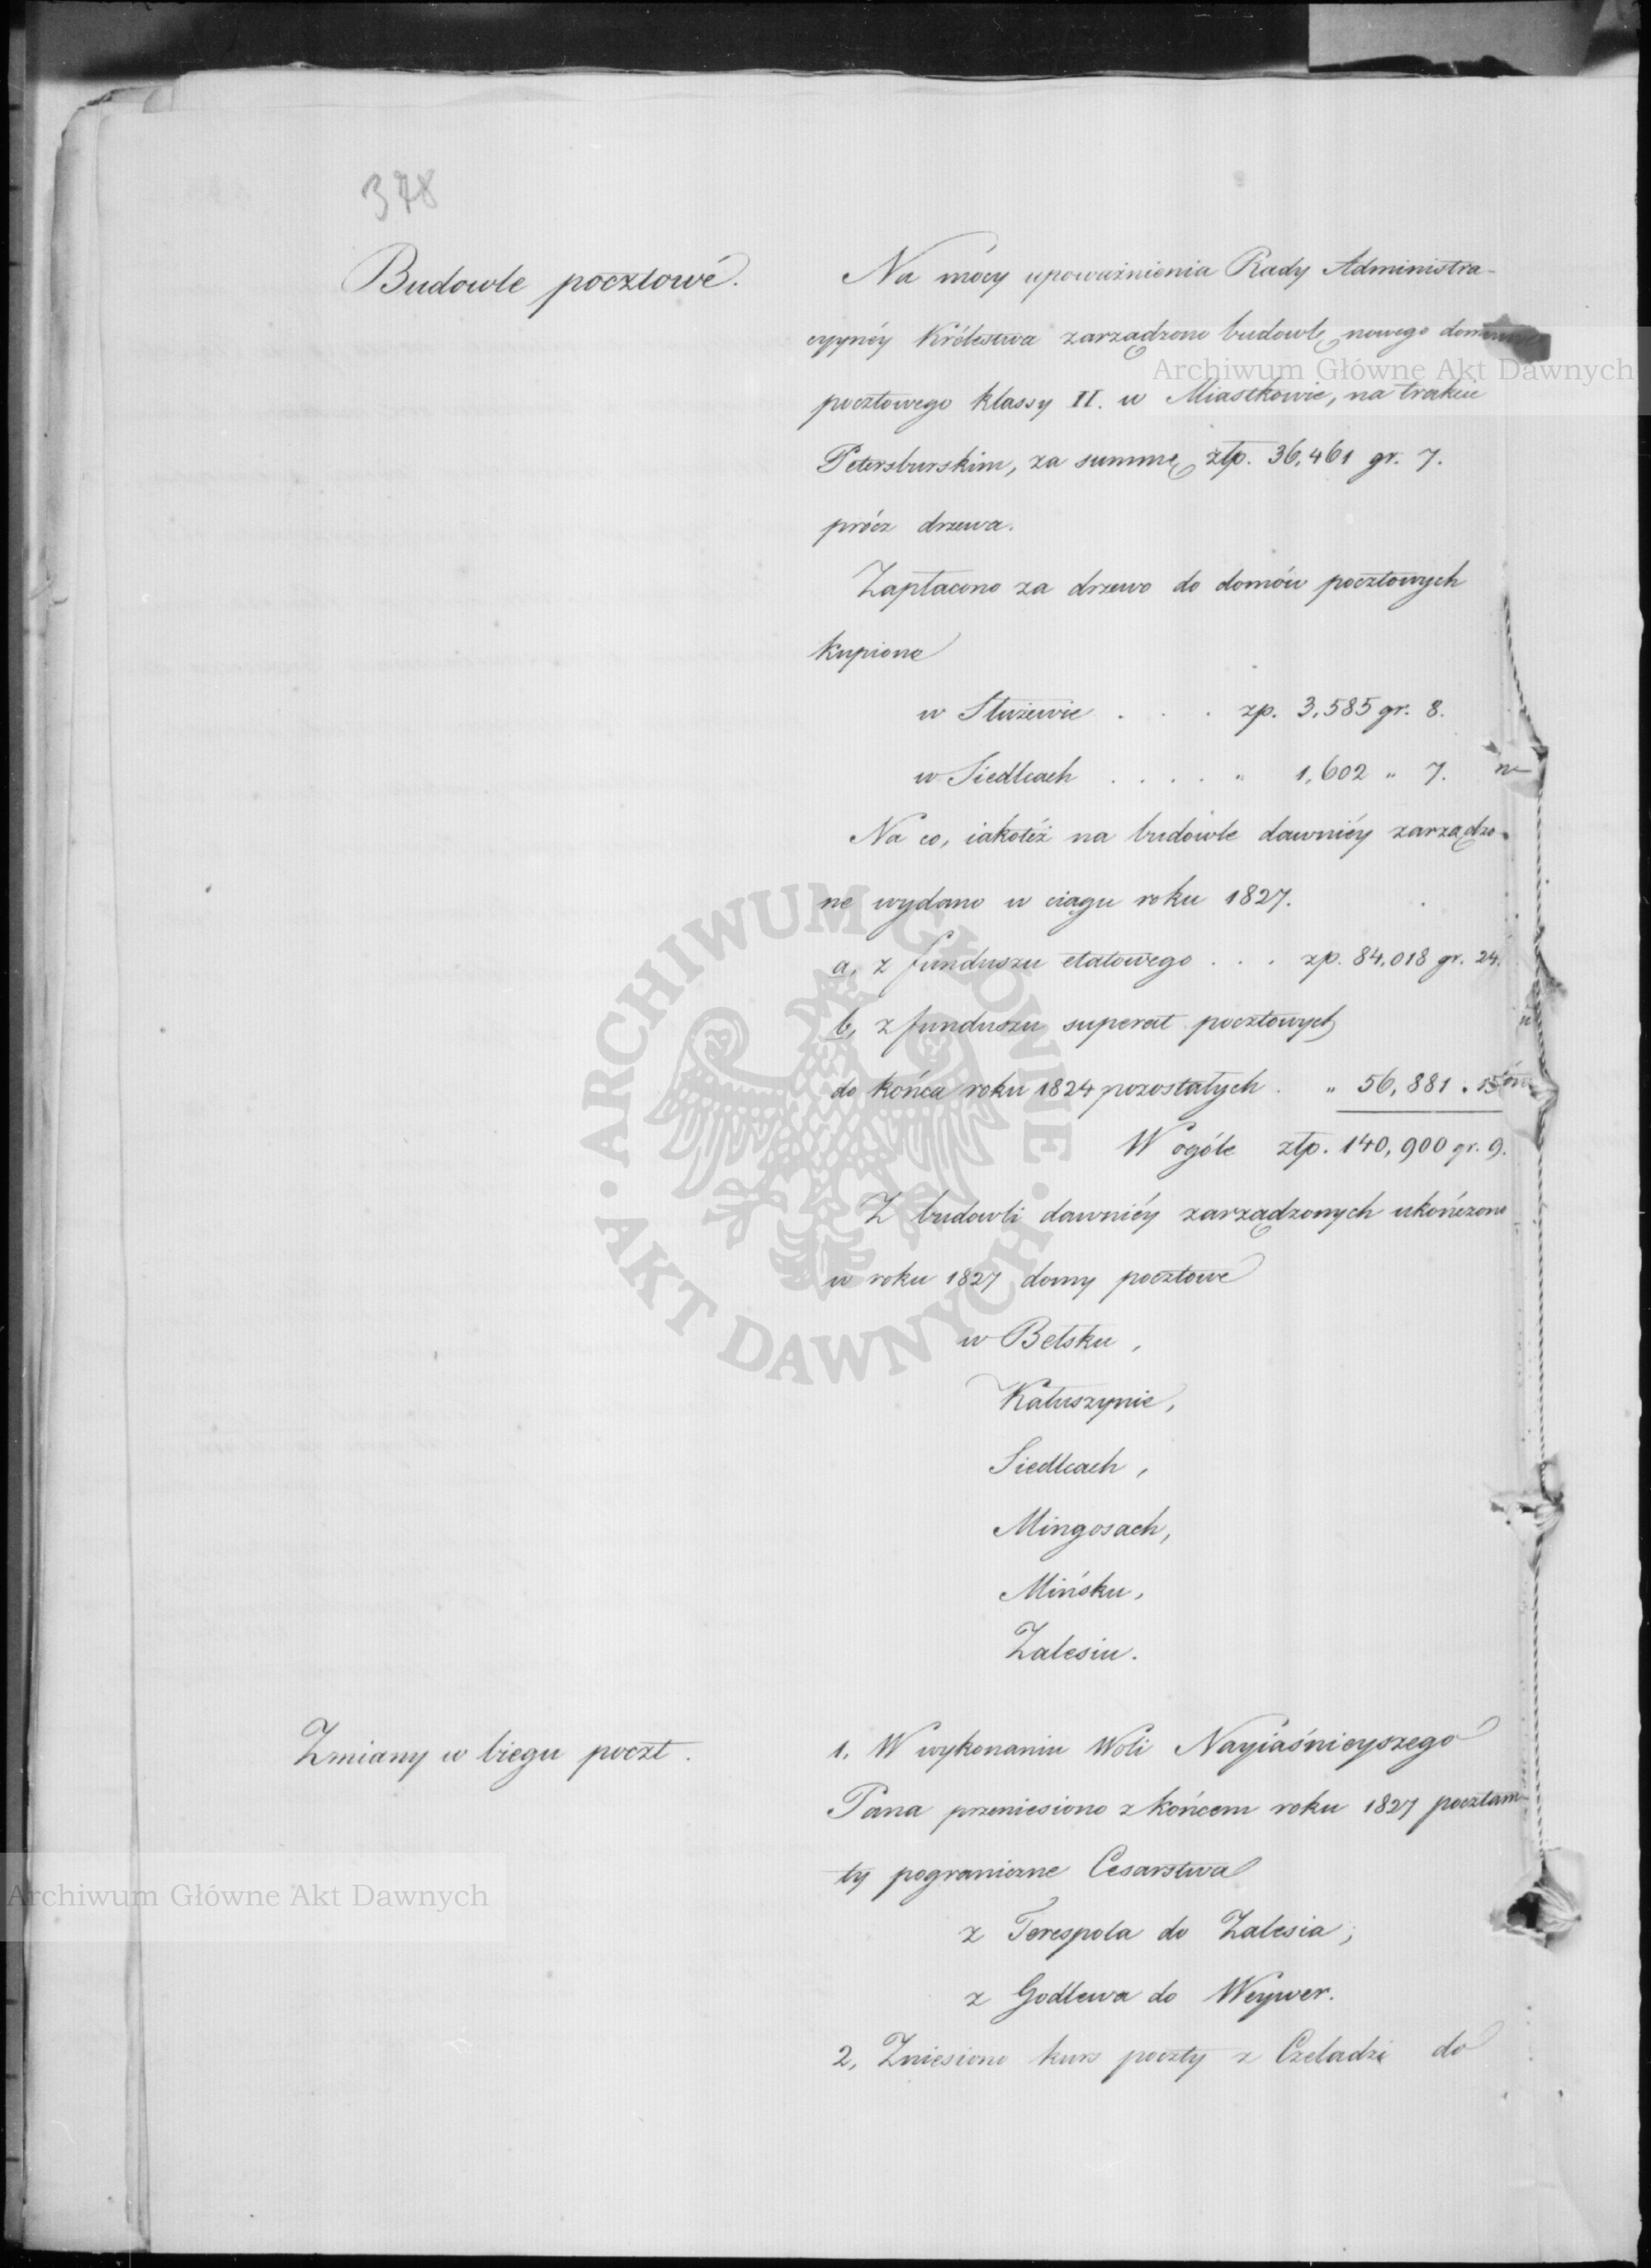 378
Budowle pocztowé.
Na mocy upoważnienia Rady Administra-
cyynéy Królestwa zarządzono budowlę nowego domu
pocztowego klassy II. w Miastkowie, na trakcie
Petersburskim, za summę złp. 36,461 gr. 7.
prócz drzewa.
Zapłacono za drzewo do domów pocztowych
kupione
w Służewie . . . zp. 3,585 gr. 8.
w Siedlcach . . . . " 1,602 " 7.
Na co, iakoteż na budowle dawniéy zarządzo-
ne wydano w ciągu roku 1827.
a, z funduszu etatowego . . . zp. 84,018 gr. 24.
b, z funduszu superat pocztowych
do końca roku 1824 pozostałych . " 56,881 " 15
W ogóle złp. 140,900 gr. 9.
Z budowli dawniéy zarządzonych ukończono
w roku 1827 domy pocztowe
w Belsku,
Kałuszynie,
Siedlcach,
Mingosach,
Mińsku,
Zalesiu.
Zmiany w biegu poczt.
1. W wykonaniu Woli Nayiaśnieyszego
Pana przeniesiono z końcem roku 1827 pocztam-
ty pograniczne Cesarstwa
z Terespola do Zalesia;
z Godlewa do Weywer.
2, Zniesiono kurs poczty z Czeladzi do
Archiwum Główne Akt Dawnych
ARCHIWUM GŁÓWNE · AKT DAWNYCH ·
Archiwum Główne Akt Dawnych